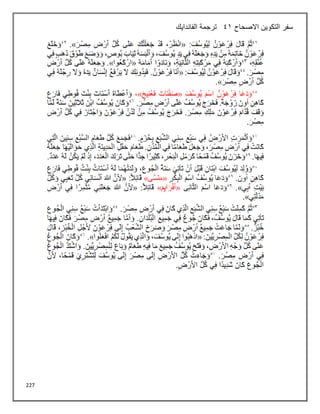 سفر التكوين الاصحاح ٤١ ترجمة الفاندايك
٤١ثُمَّ قَالَ فِرْعَوْنُ لِيُوسُفَ: «انْظُرْ، قَدْ جَعَلْتُكَ عَلَى كُلِّ أَرْضِ مِصْرَ». ٤٢وَخَلَعَ
فِرْعَوْنُ خَاتِمَهُ مِنْ يَدِهِ وَجَعَلَهُ فِي يَدِ يُوسُفَ، وَأَلْبَسَهُ ثِيَابَ بُوصٍ، وَوَضَعَ طَوْقَ ذَهَبٍ فِي
عُنُقِهِ، ٤٣وَأَرْكَبَهُ فِي مَرْكَبَتِهِ الثَّانِيَةِ، وَنَادَوْا أَمَامَهُ «ارْكَعُوا». وَجَعَلَهُ عَلَى كُلِّ أَرْضِ
مِصْرَ. ٤٤وَقَالَ فِرْعَوْنُ لِيُوسُفَ: «أَنَا فِرْعَوْنُ. فَبِدُونِكَ لاَ يَرْفَعُ إِنْسَانٌ يَدَهُ وَلاَ رِجْلَهُ فِي
كُلِّ أَرْضِ مِصْرَ».
٤٥وَدَعَا فِرْعَوْنُ اسْمَ يُوسُفَ «صَفْنَاتَ فَعْنِيحَ»، وَأَعْطَاهُ أَسْنَاتَ بِنْتَ فُوطِي فَارَعَ
كَاهِنِ أُونَ زَوْجَةً. فَخَرَجَ يُوسُفُ عَلَى أَرْضِ مِصْرَ. ٤٦وَكَانَ يُوسُفُ ابْنَ ثَلاَثِينَ سَنَةً لَمَّا
وَقَفَ قُدَّامَ فِرْعَوْنَ مَلِكِ مِصْرَ. فَخَرَجَ يُوسُفُ مِنْ لَدُنْ فِرْعَوْنَ وَاجْتَازَ فِي كُلِّ أَرْضِ
مِصْرَ.
٤٧وَأَثْمَرَتِ الأَرْضُ فِي سَبْعِ سِنِي الشِّبَعِ بِحُزَمٍ. ٤٨فَجَمَعَ كُلَّ طَعَامِ السَّبْعِ سِنِينَ الَّتِي
كَانَتْ فِي أَرْضِ مِصْرَ، وَجَعَلَ طَعَامًا فِي الْمُدُنِ. طَعَامَ حَقْلِ الْمَدِينَةِ الَّذِي حَوَالَيْهَا جَعَلَهُ
فِيهَا. ٤٩وَخَزَنَ يُوسُفُ قَمْحًا كَرَمْلِ الْبَحْرِ، كَثِيرًا جِدًّا حَتَّى تَرَكَ الْعَدَدَ، إِذْ لَمْ يَكُنْ لَهُ عَدَدٌ.
٥٠وَوُلِدَ لِيُوسُفَ ابْنَانِ قَبْلَ أَنْ تَأْتِيَ سَنَةُ الْجُوعِ، وَلَدَتْهُمَا لَهُ أَسْنَاتُ بِنْتُ فُوطِي فَارَعَ
كَاهِنِ أُونَ. ٥١وَدَعَا يُوسُفُ اسْمَ الْبِكْرِ «مَنَسَّى» قَائِلاً: «لأَنَّ اللهَ أَنْسَانِي كُلَّ تَعَبِي وَكُلَّ
بَيْتِ أَبِي». ٥٢وَدَعَا اسْمَ الثَّانِي «أَفْرَايِمَ» قَائِلاً: «لأَنَّ اللهَ جَعَلَنِي مُثْمِرًا فِي أَرْضِ
مَذَلَّتِي».
٥٣ثُمَّ كَمِلَتْ سَبْعُ سِنِي الشِّبَعِ الَّذِي كَانَ فِي أَرْضِ مِصْرَ. ٥٤وَابْتَدَأَتْ سَبْعُ سِنِي الْجُوعِ
تَأْتِي كَمَا قَالَ يُوسُفُ، فَكَانَ جُوعٌ فِي جَمِيعِ الْبُلْدَانِ. وَأَمَّا جَمِيعُ أَرْضِ مِصْرَ فَكَانَ فِيهَا
خُبْزٌ. ٥٥وَلَمَّا جَاعَتْ جَمِيعُ أَرْضِ مِصْرَ وَصَرَخَ الشَّعْبُ إِلَى فِرْعَوْنَ لأَجْلِ الْخُبْزِ، قَالَ
فِرْعَوْنُ لِكُلِّ الْمِصْرِيِّينَ: «اذْهَبُوا إِلَى يُوسُفَ، وَالَّذِي يَقُولُ لَكُمُ افْعَلُوا». ٥٦وَكَانَ الْجُوعُ
عَلَى كُلِّ وَجْهِ الأَرْضِ، وَفَتَحَ يُوسُفُ جَمِيعَ مَا فِيهِ طَعَامٌ وَبَاعَ لِلْمِصْرِيِّينَ. وَاشْتَدَّ الْجُوعُ
فِي أَرْضِ مِصْرَ. ٥٧وَجَاءَتْ كُلُّ الأَرْضِ إِلَى مِصْرَ إِلَى يُوسُفَ لِتَشْتَرِيَ قَمْحًا، لأَنَّ
الْجُوعَ كَانَ شَدِيدًا فِي كُلِّ الأَرْضِ.
227